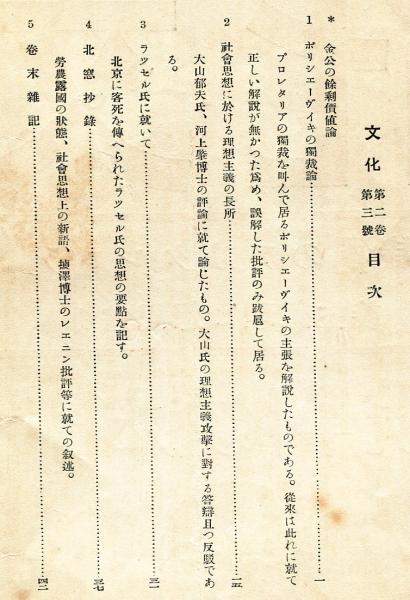 文化 第二卷 第三號 目次
* 金公の餘剩價値論
1 ボリシエーヴイキの獨裁論……一
プロレタリアの獨裁を叫んで居るボリシエーヴイキの主張を解說したものである。從來は此れに就て
正しい解說が無かつた爲め、誤解した批評のみ跋扈して居る。
2 社會思想に於ける理想主義の長所……一五
大山郁夫氏、河上肇博士の評論に就て論じたもの。大山氏の理想主義攻擊に對する答辯且つ反駁であ
る。
3 ラツセル氏に就いて……三一
北京に客死を傳へられたラツセル氏の思想の要點を記す。
4 北窓抄錄……三七
勞農露國の狀態、社會思想上の新語、 澤博士のレエニン批評等に就ての叙述。
5 卷末雜記……四二